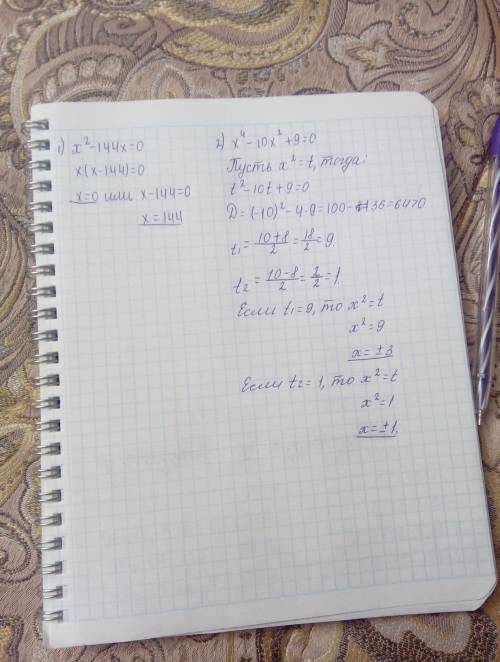 1) x²-144x=0
x(x-144)=0
x=0 или x-144=0
x=144
2) x⁴-10x²+9=0
Пусть x²=t, тогда:
t²-10t+9=0
D=(-10)²-4·9=100-36=64>0
t₁=(10+8)/2=18/2=9.
t₂=(10-8)/2=2/2=1.
Если t₁=9, то x²=t
x²=9
x=±3
Если t₂=1, то x²=t
x²=1
x=±1.